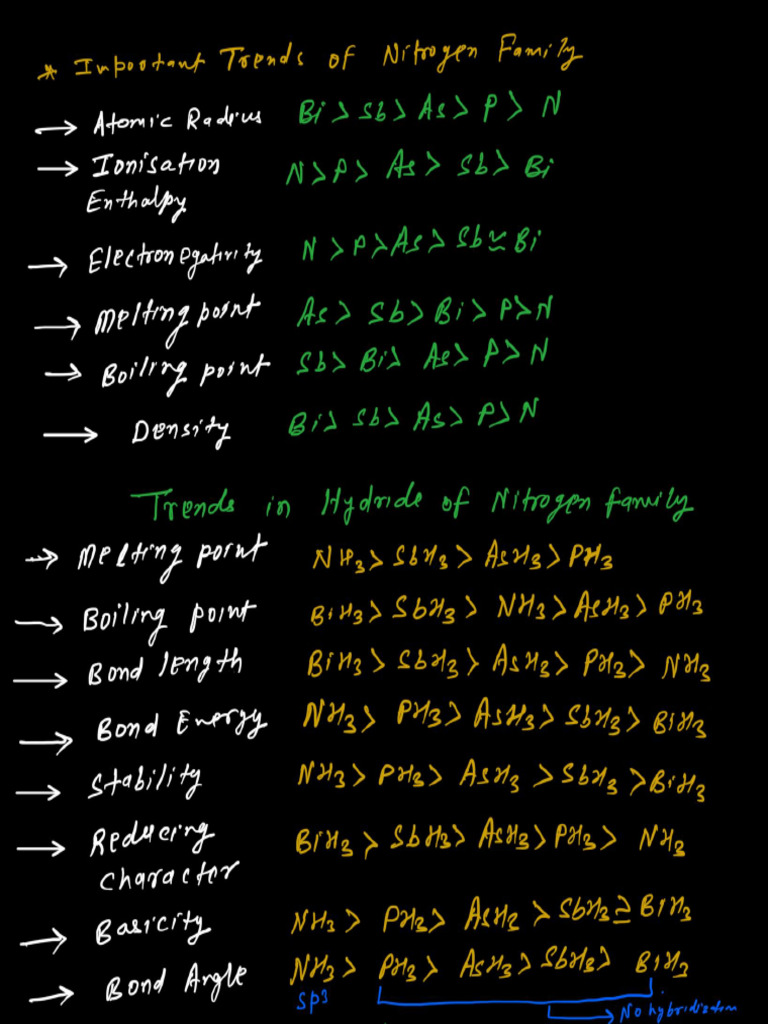 * Important Trends of Nitrogen Family
→ Atomic Radius Bi > Sb > As > P > N
→ Ionisation Enthalpy N > P > As > Sb > Bi
→ Electronegativity N > P > As > Sb ≃ Bi
→ Melting point As > Sb > Bi > P > N
→ Boiling point Sb > Bi > As > P > N
→ Density Bi > Sb > As > P > N
Trends in Hydride of Nitrogen family
→ Melting point NH3 > SbH3 > AsH3 > PH3
→ Boiling point BiH3 > SbH3 > NH3 > AsH3 > PH3
→ Bond length BiH3 > SbH3 > AsH3 > PH3 > NH3
→ Bond Energy NH3 > PH3 > AsH3 > SbH3 > BiH3
→ Stability NH3 > PH3 > AsH3 > SbH3 > BiH3
→ Reducing character BiH3 > SbH3 > AsH3 > PH3 > NH3
→ Basicity NH3 > PH3 > AsH3 > SbH3 ≥ BiH3
→ Bond Angle NH3 > PH3 > AsH3 > SbH3 > BiH3
sp3 → No hybridization